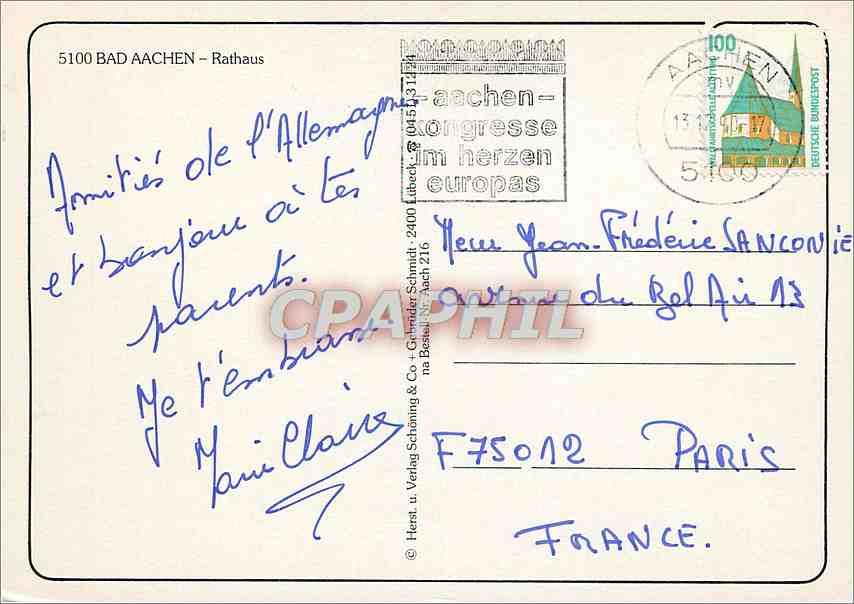 5100 BAD AACHEN – Rathaus
Amitiés de l'Allemagne
et bonjour à tes
parents.
Je t'embrasse
Marie Claire
© Herst. u. Verlag Schöning & Co + Gebrüder Schmidt · 2400 Lübeck · ☎ (0451) 31
na Bestell-Nr. Aach 216
– aachen –
kongresse
im herzen
europas
AACHEN 1
mv
5100
100
WALLFAHRTSKAPELLE ALTÖTTING
DEUTSCHE BUNDESPOST
Jean-Frédéric SANCONIE
avenue du Bel Air 13
F 75012 PARIS
FRANCE.
CPAPHIL